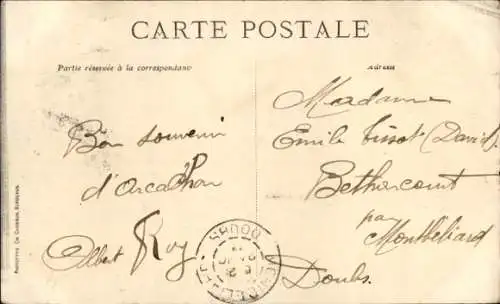 CARTE POSTALE
Partie réservée à la correspondance
Adresse
Bon souvenir
d'Arcachon
Albert Roy
Madame
Emile Tissot (David)
Bethoncourt
par
Montbéliard
Doubs.
DOUBS